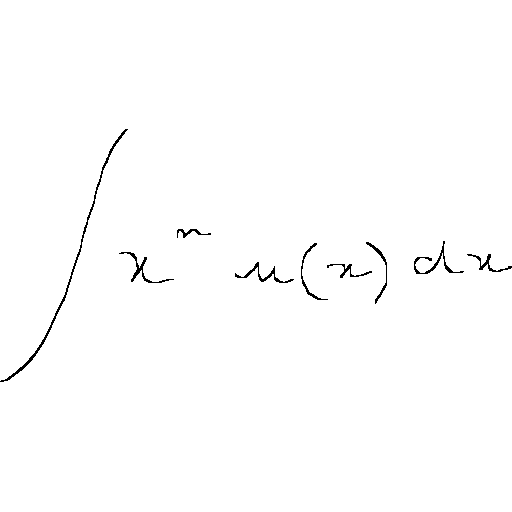 ∫ xⁿ u(x) dx